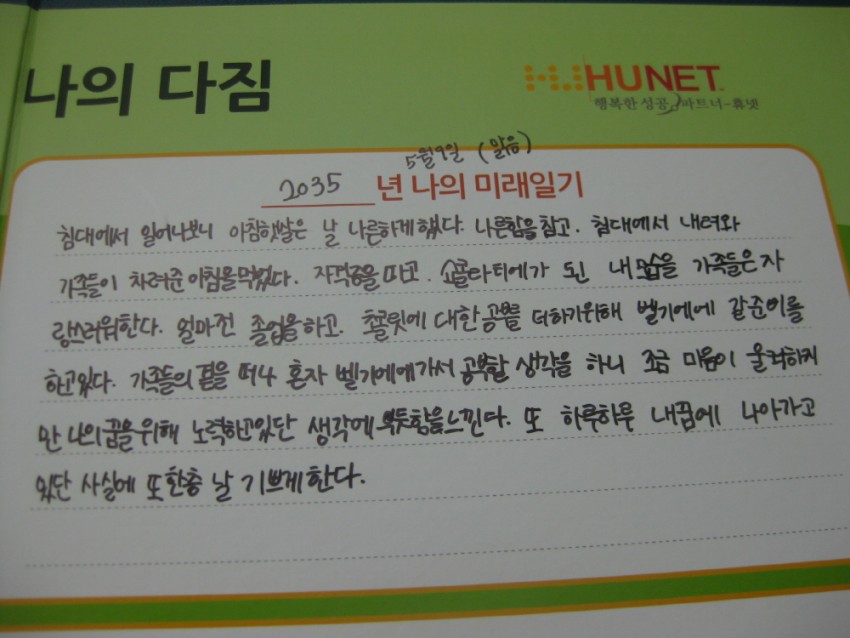 나의 다짐
HUNET
행복한 성공 파트너-휴넷
5월 9일 (맑음)
2035 년 나의 미래일기
침대에서 일어나보니 아침햇살은 날 나른하게했다. 나른함을참고. 침대에서 내려와
가족들이 차려준 아침을먹었다. 자격증을따고. 쇼콜라티에가 된 내모습을 가족들은 자
랑스러워한다. 얼마전 졸업을하고. 초콜릿에 대한공부를 더하기위해 벨기에에 갈준비를
하고있다. 가족들의 곁을 떠나 혼자 벨기에에가서 공부할 생각을 하니 조금 마음이 울적하지
만 나의꿈을위해 노력하고있단 생각에 뿌듯함을느낀다. 또 하루하루 내꿈에 나아가고
있단 사실에 또한층 날 기쁘게한다.